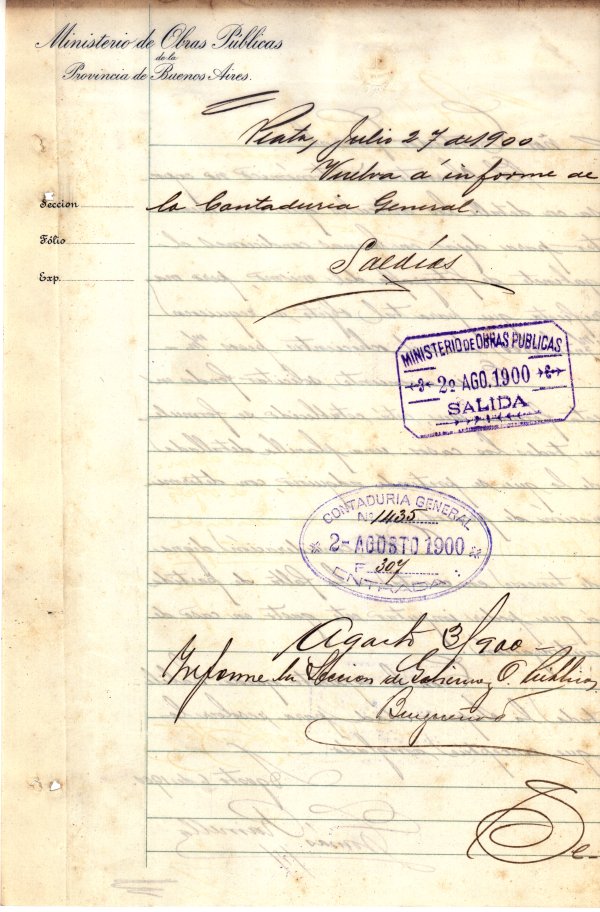 Ministerio de Obras Públicas
de la
Provincia de Buenos Aires.
Plata, Julio 27 de 1900
Vuelva á informe de
la Contaduria General.
Seccion
Fólio
Exp.
Saldías
MINISTERIO DE OBRAS PUBLICAS
2 AGO. 1900
SALIDA
CONTADURIA GENERAL
Nº 1435
2- AGOSTO 1900
F 307
ENTRADA
Agosto 3/900-
Informe la Seccion de Gobierno y O. Publicas